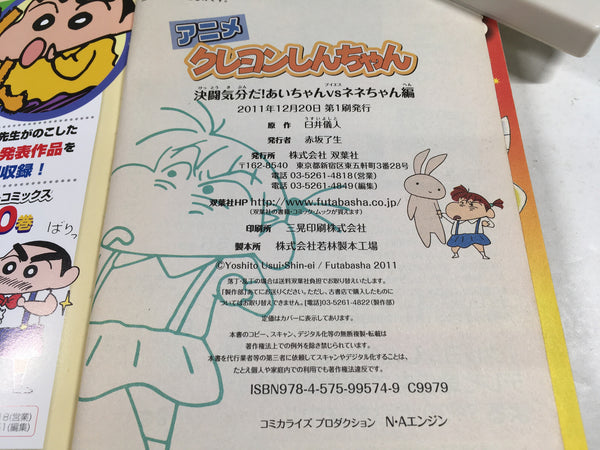 先生がのこした
発表作品を
収録！
コミックス
0巻
ばりっ
18(営業)
1(編集)
アニメ
クレヨンしんちゃん
けっとう きぶん アイエス へん
決闘気分だ!あいちゃんvsネネちゃん編
2011年12月20日 第1刷発行
うすいよしと
原作 臼井儀人
発行者 赤坂了生
発行所 株式会社 双葉社
〒162-8540 東京都新宿区東五軒町3番28号
電話 03-5261-4818(営業)
電話 03-5261-4849(編集)
双葉社HP http://www.futabasha.co.jp/
(双葉社の書籍・コミック・ムックが買えます)
印刷所 三晃印刷株式会社
製本所 株式会社若林製本工場
©Yoshito Usui-Shin-ei / Futabasha 2011
落丁・乱丁の場合は送料双葉社負担でお取り替えいたします。
「製作部」あてにお送りください。ただし、古書店で購入したものに
ついてはお取り替えできません。[電話]03-5261-4822(製作部)
定価はカバーに表示してあります。
本書のコピー、スキャン、デジタル化等の無断複製・転載は
著作権法上での例外を除き禁じられています。
本書を代行業者等の第三者に依頼してスキャンやデジタル化することは、
たとえ個人や家庭内での利用でも著作権法違反です。
ISBN978-4-575-99574-9 C9979
コミカライズ プロダクション N・Aエンジン